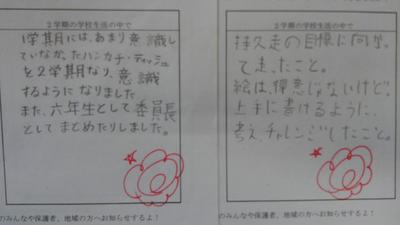 2学期の学校生活の中で
1学期には、あまり意識し
ていなかったハンカチ・ティッシュ
を2学期なり、意識
するようになりました
また、六年生として委員長
としてまとめたりしました。
のみんなや保護者、地域の方へお知らせするよ！
2学期の学校生活の中で
持久走の目標に向かっ
て走ったこと。
絵は、得意じゃないけど、
上手に書けるように、
考え、チャレンジしたこと。
なや保護者、地域の方へお知らせするよ！